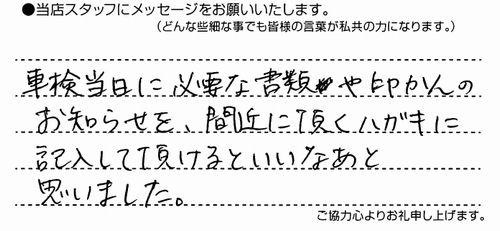 ●当店スタッフにメッセージをお願いいたします。
（どんな些細な事でも皆様の言葉が私共の力になります。）
車検当日に必要な書類や印かんの
お知らせを、間近に頂くハガキに
記入して頂けるといいなあと
思いました。
ご協力心よりお礼申し上げます。